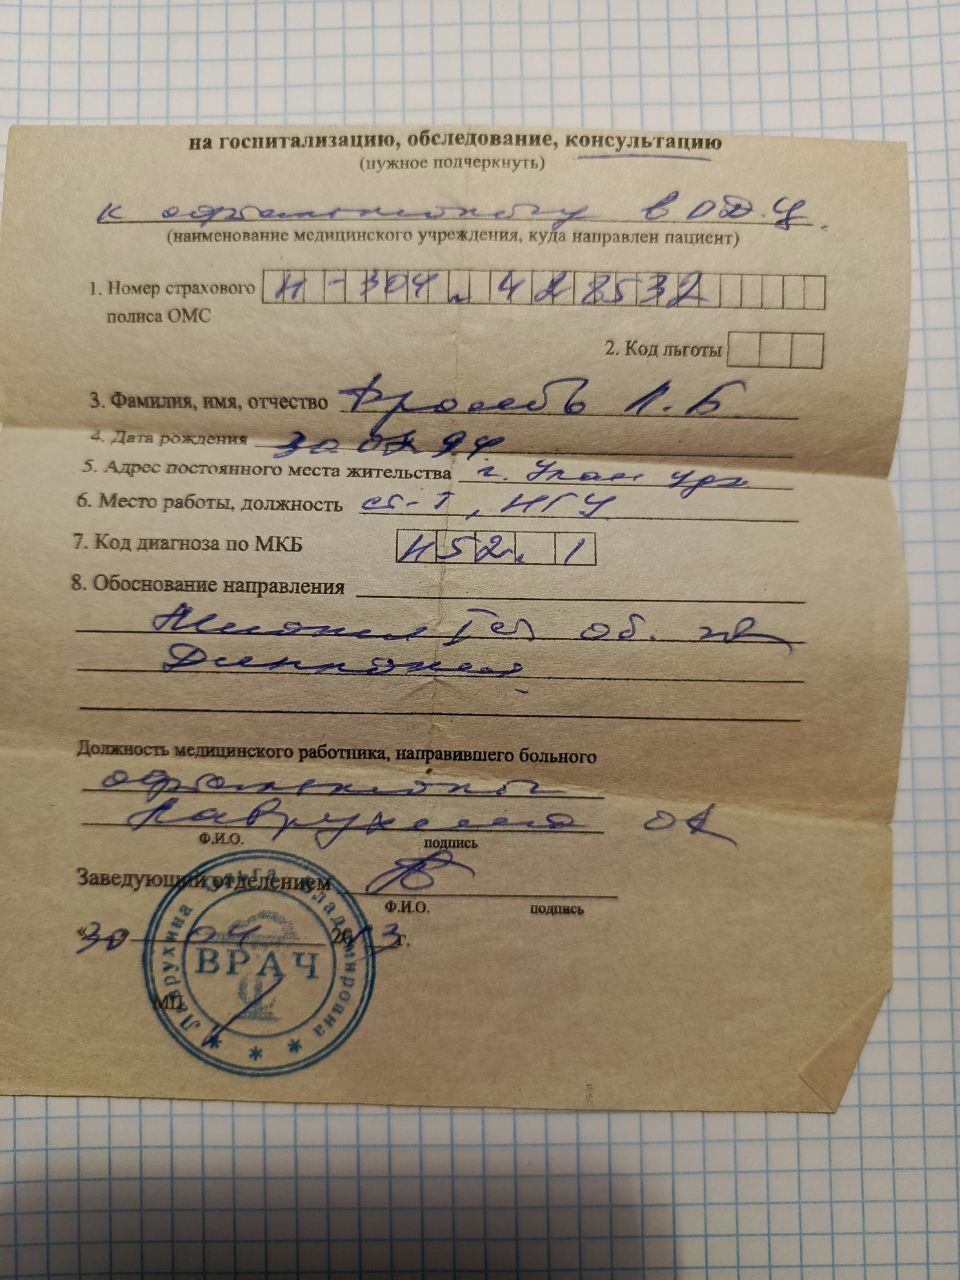 на госпитализацию, обследование, консультацию
(нужное подчеркнуть)
к офтальмологу в ОДЦ.
(наименование медицинского учреждения, куда направлен пациент)
1. Номер страхового полиса ОМС Н - 304. 428532
2. Код льготы
3. Фамилия, имя, отчество Л. Б.
4. Дата рождения 30 94
5. Адрес постоянного места жительства г. Улан Удэ
6. Место работы, должность ст-т, НГУ
7. Код диагноза по МКБ Н52.1
8. Обоснование направления
Миопия I ст об. гл
Должность медицинского работника, направившего больного
офтальмолог
Лаврухина ОВ
Ф.И.О. подпись
Заведующий отделением
Ф.И.О. подпись
"30 04 2013 г.
МП
Лаврухина Ольга Владимировна
ВРАЧ